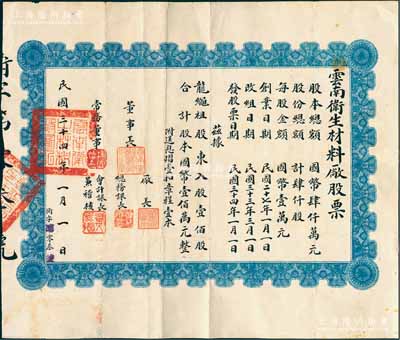 雲南衛生材料廠股票
股本總額 國幣肆仟萬元
股份總額 計肆仟股
每股金額 國幣壹萬元
創業日期 民國二十七年一月一日
改組日期 民國三十三年三月一日
發股票日期 民國三十四年一月一日
茲據
龍繩祖股東入股壹佰股
合計股本國幣壹佰萬元整
附送息摺和章程壹本
董事長 廠長
常務董事 總務課長
會計課長
民國三十四年一月一日